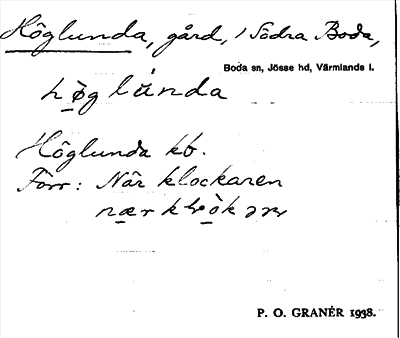 Höglunda, gård, i Södra Boda,
Boda sn, Jösse hd, Värmlands l.
Höglunda kb.
Förr: När klockaren
P. O. GRANÉR 1938.